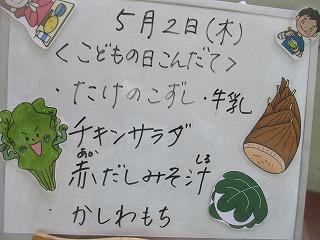 5月2日(木)
<こどもの日こんだて>
・たけのこずし・牛乳
チキンサラダ
あか しる
赤だしみそ汁
・かしわもち